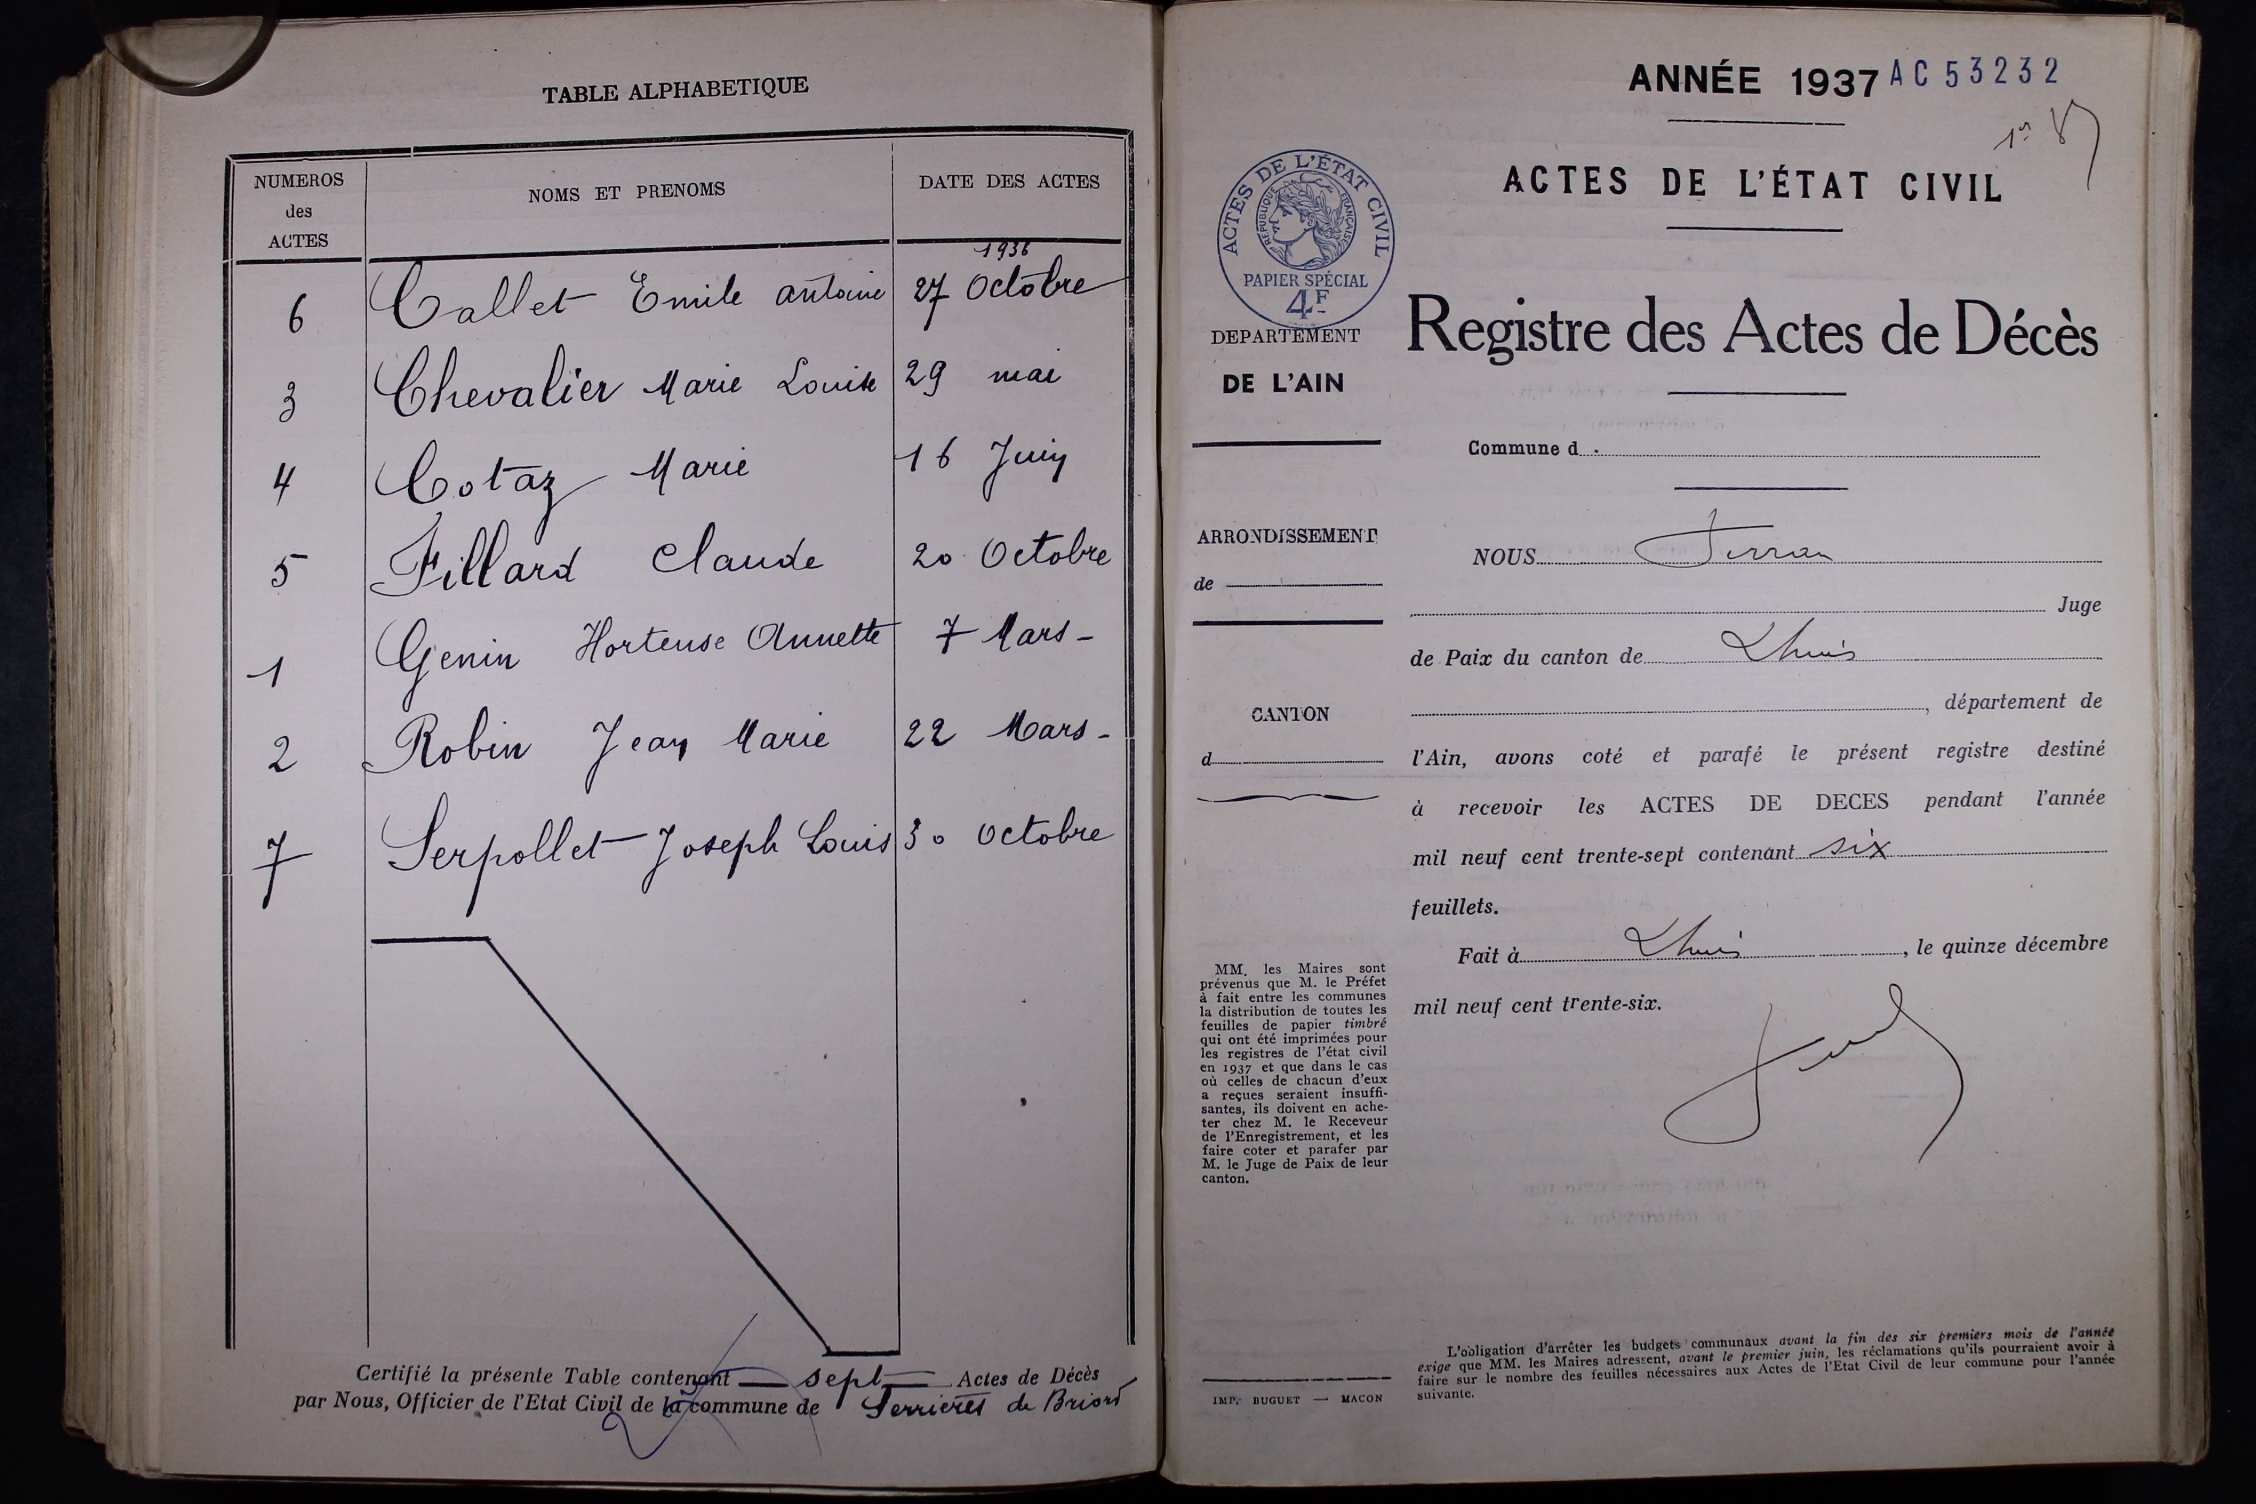 TABLE ALPHABETIQUE
NUMEROS
des
ACTES
NOMS ET PRENOMS
DATE DES ACTES
1936
6 Callet Emile Antoine 27 Octobre
3 Chevalier Marie Louise 29 mai
4 Cotaz Marie 16 Juin
5 Fillard Claude 20 Octobre
1 Genin Hortense Annette 7 Mars -
2 Robin Jean Marie 22 Mars -
7 Serpollet Joseph Louis 30 Octobre
Certifié la présente Table contenant sept Actes de Décès
par Nous, Officier de l'Etat Civil de la commune de Serrières de Briord
ANNÉE 1937 AC 53232
ACTES DE L'ÉTAT CIVIL
ACTES DE L'ÉTAT CIVIL
RÉPUBLIQUE FRANÇAISE
PAPIER SPÉCIAL
4F
DEPARTEMENT
DE L'AIN
Registre des Actes de Décès
Commune d
ARRONDISSEMENT
de
CANTON
d
NOUS
Juge
de Paix du canton de Lhuis
, département de
l'Ain, avons coté et parafé le présent registre destiné
à recevoir les ACTES DE DECES pendant l'année
mil neuf cent trente-sept contenant six
feuillets.
Fait à Lhuis, le quinze décembre
mil neuf cent trente-six.
MM. les Maires sont
prévenus que M. le Préfet
à fait entre les communes
la distribution de toutes les
feuilles de papier timbré
qui ont été imprimées pour
les registres de l'état civil
en 1937 et que dans le cas
où celles de chacun d'eux
a reçues seraient insuffi-
santes, ils doivent en ache-
ter chez M. le Receveur
de l'Enregistrement, et les
faire coter et parafer par
M. le Juge de Paix de leur
canton.
IMP. BUGUET — MACON
L'obligation d'arrêter les budgets communaux avant la fin des six premiers mois de l'année
exige que MM. les Maires adressent, avant le premier juin, les réclamations qu'ils pourraient avoir à
faire sur le nombre des feuilles nécessaires aux Actes de l'Etat Civil de leur commune pour l'année
suivante.